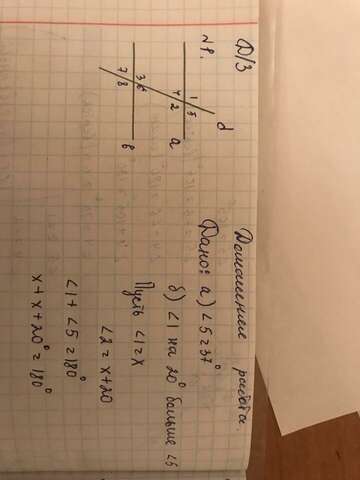 Домашняя работа.
Д/З
№1.
d
1 5
4 2
3 6
7 8
a
b
Дано: а) ∠5 = 37°
б) ∠1 на 20° больше ∠5
Пусть ∠1 = x
∠2 = x + 20
∠1 + ∠5 = 180°
x + x + 20° = 180°